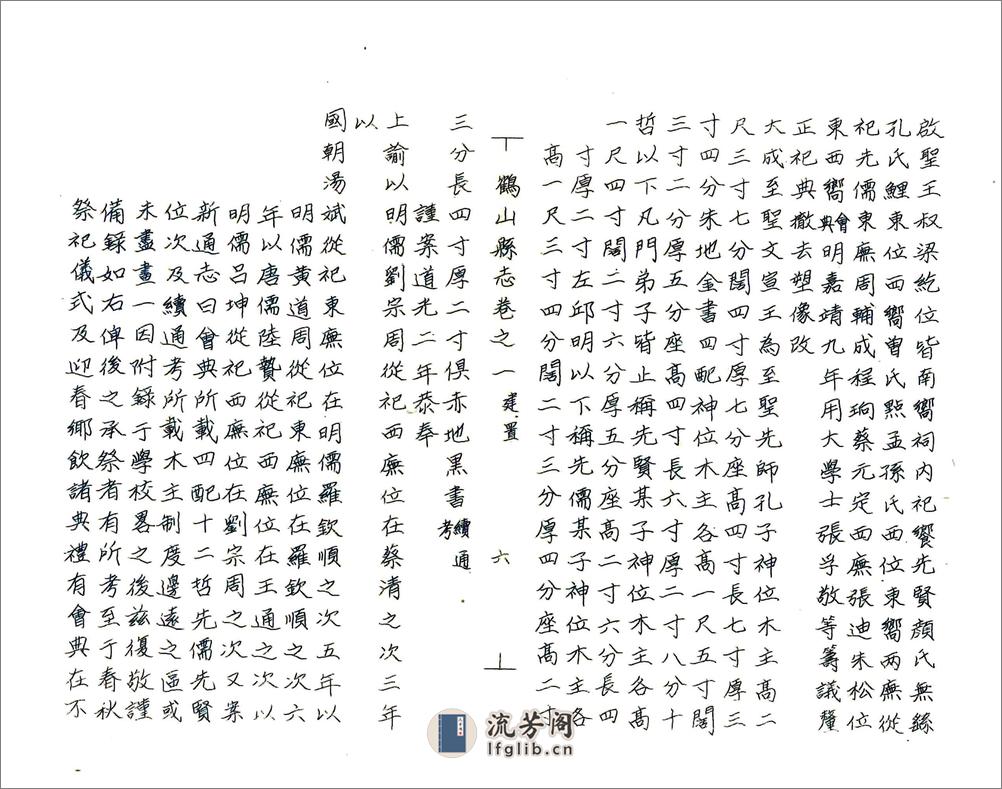 啟聖王叔梁紇位皆南嚮祠内祀饗先賢顔氏無繇
孔氏鯉東位西嚮曾氏㸃孟孫氏西位東嚮两廡從
祀先儒東廡周輔成程珦蔡元定西廡張迪朱松位
東西嚮會典明嘉靖九年用大學士張孚敬等籌議釐
正祀典撤去塑像改
大成至聖文宣王為至聖先師孔子神位木主髙二
尺三寸七分闊四寸厚七分座髙四寸長七寸厚三
寸四分朱地金書四配神位木主各髙一尺五寸闊
三寸二分厚五分座髙四寸長六寸厚二寸八分十
哲以下凡門弟子皆止稱先賢某子神位木主各髙
一尺四寸闊二寸六分厚五分座髙二寸六分長四
寸厚二寸左邱明以下稱先儒某子神位木主各
髙一尺三寸四分闊二寸三分厚四分座髙二寸
鶴山縣志卷之一 建置 六
三分長四寸厚二寸俱赤地黑書續通考
謹案道光二年恭奉
上諭以明儒劉宗周從祀西廡位在蔡清之次三年
以
國朝湯斌從祀東廡位在明儒羅欽順之次五年以
明儒黄道周從祀東廡位在羅欽順之次六
年以唐儒陸贄從祀西廡位在王通之次以
明儒吕坤從祀西廡位在劉宗周之次又案
新通志曰會典所載四配十二哲先儒先賢
位次及續通考所載木主制度邊遠之區或
未盡畫一因附録于學校畧之後兹復敬謹
備録如右俾後之承祭者有所考至于春秋
祭祀儀式及迎春鄉飲諸典禮有會典在不
流芳阁
lfglib.cn